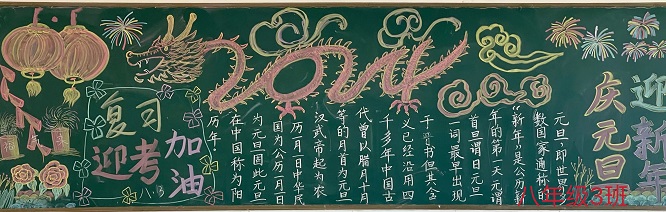 2024
迎新年
庆元旦
元旦，即世
数国家通称的
"新年"是公历
年的第一天元谓
首旦谓日元旦
一词最早出现
于晋书但其含
义已经沿用四
千多年中国古
代曾以腊月十月
等的月首为元旦
汉武帝起为农
历一月一日中华民
国为公历一月一日
为元旦因此元旦
在中国称为阳
历年.
复习
迎考
加油
八.3
八年级3班